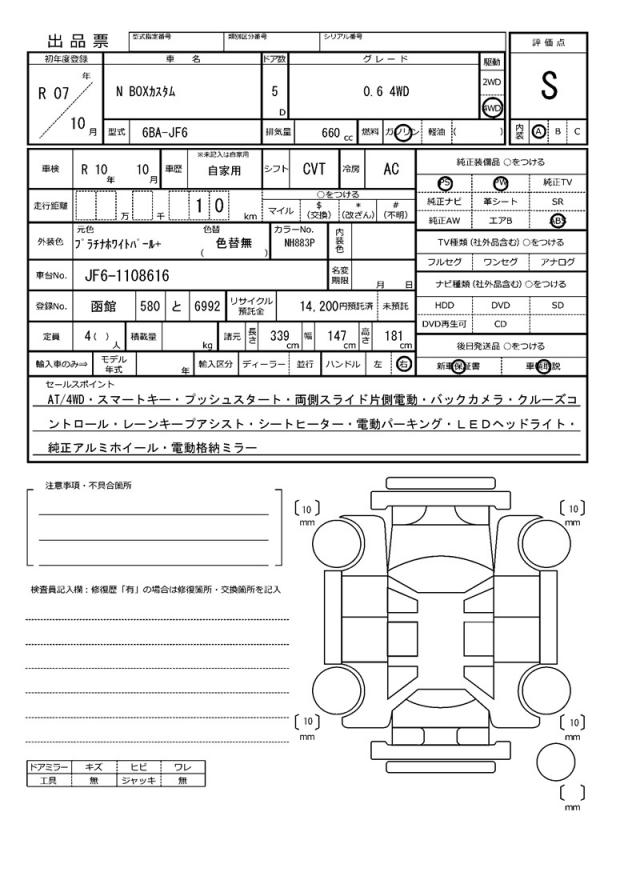 出品票 型式指定番号 類別区分番号 シリアル番号 評価点
初年度登録 車名 ドア数 グレード 駆動
R 07 年 10 月 N BOXカスタム 5 D 0.6 4WD 2WD 4WD S
型式 6BA-JF6 排気量 660 cc 燃料 ガソリン 軽油 ( ) 内装 A B C
車検 R 10 年 10 月 車歴 ※未記入は自家用 自家用 シフト CVT 冷房 AC 純正装備品 ○をつける
PS PW 純正TV
走行距離 万 千 1 0 km ○をつける
マイル $(交換) *(改ざん) #(不明)
純正ナビ 革シート SR
純正AW エアB ABS
外装色 元色 プラチナホワイトパール+ 色替 ( 色替無 ) カラーNo. NH883P 内装色
TV種類 (社外品含む) ○をつける
フルセグ ワンセグ アナログ
車台No. JF6-1108616 名変期限 月 日
ナビ種類 (社外品含む) ○をつける
登録No. 函館 580 と 6992 リサイクル預託金 14,200円預託済 未預託
HDD DVD SD
DVD再生可 CD
定員 4( ) 人 積載量 kg 諸元 長さ 339 cm 幅 147 cm 高さ 181 cm
後日発送品 ○をつける
輸入車のみ⇒ モデル年式 年 輸入区分 ディーラー 並行 ハンドル 左 右
新車保証書 車輌取説
セールスポイント
AT/4WD・スマートキー・プッシュスタート・両側スライド片側電動・バックカメラ・クルーズコ
ントロール・レーンキープアシスト・シートヒーター・電動パーキング・LEDヘッドライト・
純正アルミホイール・電動格納ミラー
注意事項・不具合箇所
[10] mm [10] mm
検査員記入欄：修復歴「有」の場合は修復箇所・交換箇所を記入
[10] mm [10] mm
ドアミラー キズ ヒビ ワレ
工具 無 ジャッキ 無
[ ] mm